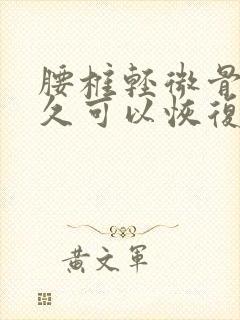 腰椎輕微骨
久可以恢復
黃文軍